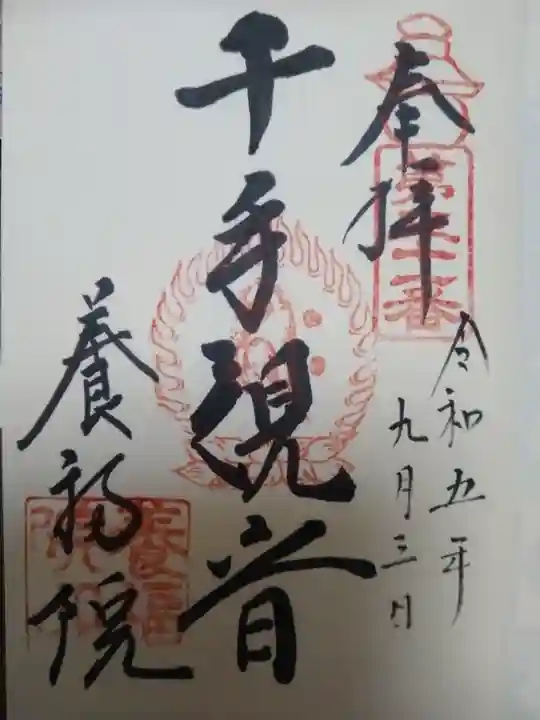 奉拝
第二番
令和五年
九月三日
千手観音
養福院